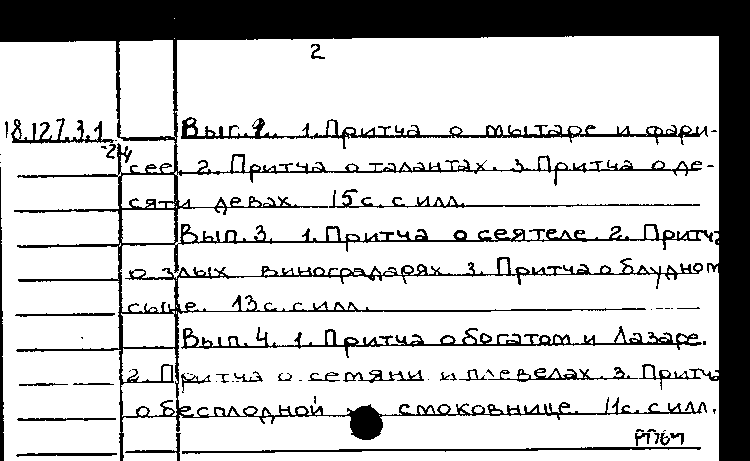 2
18.127.3.1 Вып.2. 1. Притча о мытаре и фари-
-2/4 сее. 2. Притча о талантах. 3. Притча о де-
сяти девах. 15 с. с илл.
Вып. 3. 1. Притча о сеятеле. 2. Притча
о злых виноградарях. 3. Притча о блудном
сыне. 13 с. с илл.
Вып. 4. 1. Притча о богатом и Лазаре.
2. Притча о семяни и плевелах. 3. Притча
о бесплодной смоковнице. 11 с. с илл.